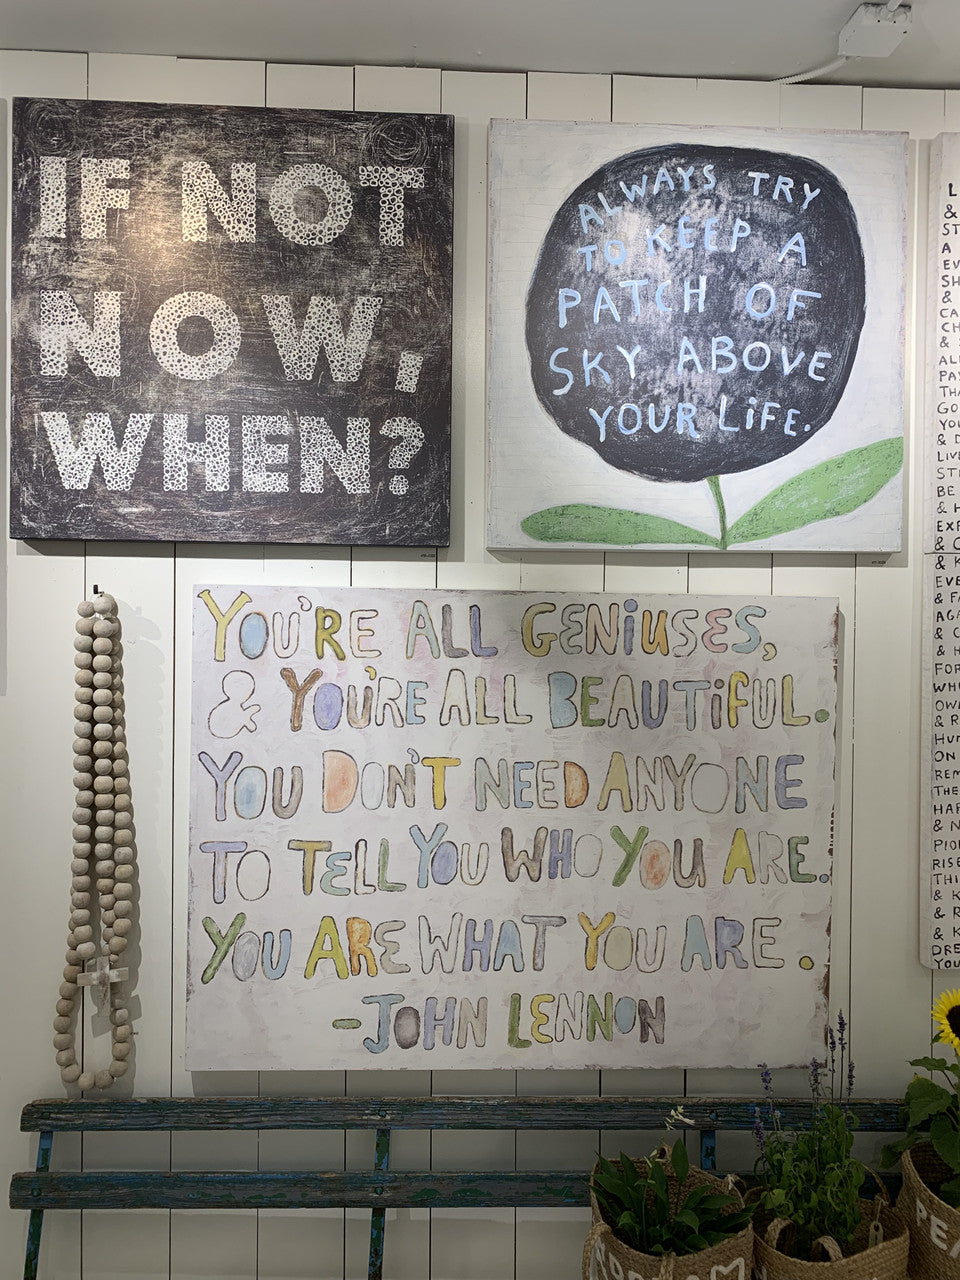 IF NOT
NOW,
WHEN?
ALWAYS TRY
TO KEEP A
PATCH OF
SKY ABOVE
YOUR LiFE.
YOU'RE ALL GENiUSES,
& YOU'RE ALL BEAUTiFUL.
YOU DON'T NEED ANYONE
TO TELL YOU WHO YOU ARE.
YOU ARE WHAT YOU ARE.
-JOHN LENNON
L
&
ST
A
EV
SH
&
CA
CH
&
ALL
PAY
THA
GO
YOU
& D
LIVE
STI
BE
& H
EXP
&
& K
EVE
& FA
AGA
& C
& H
FOR
WHO
OWN
& R
HUM
ON
REM
THE
HAP
& N
PIO
RISE
THI
& K
& R
& K
DRE
YOU
PE